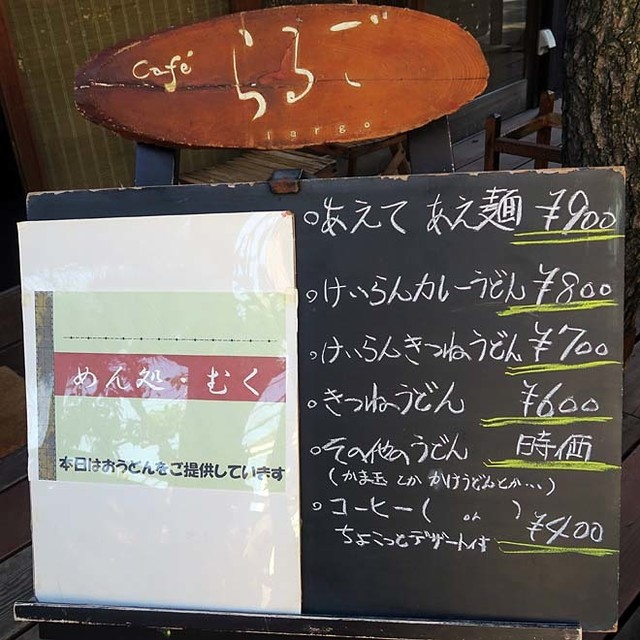 Café らるご
largo
めん処・むく
本日はおうどんをご提供しています
○あえて あえ麺 ¥900
○けいらんカレーうどん ¥800
○けいらんきつねうどん ¥700
○きつねうどん ¥600
○その他のうどん 時価
(かま玉とか かけうどんとか…)
○コーヒー( or ) ¥400
ちょこっとデザート付